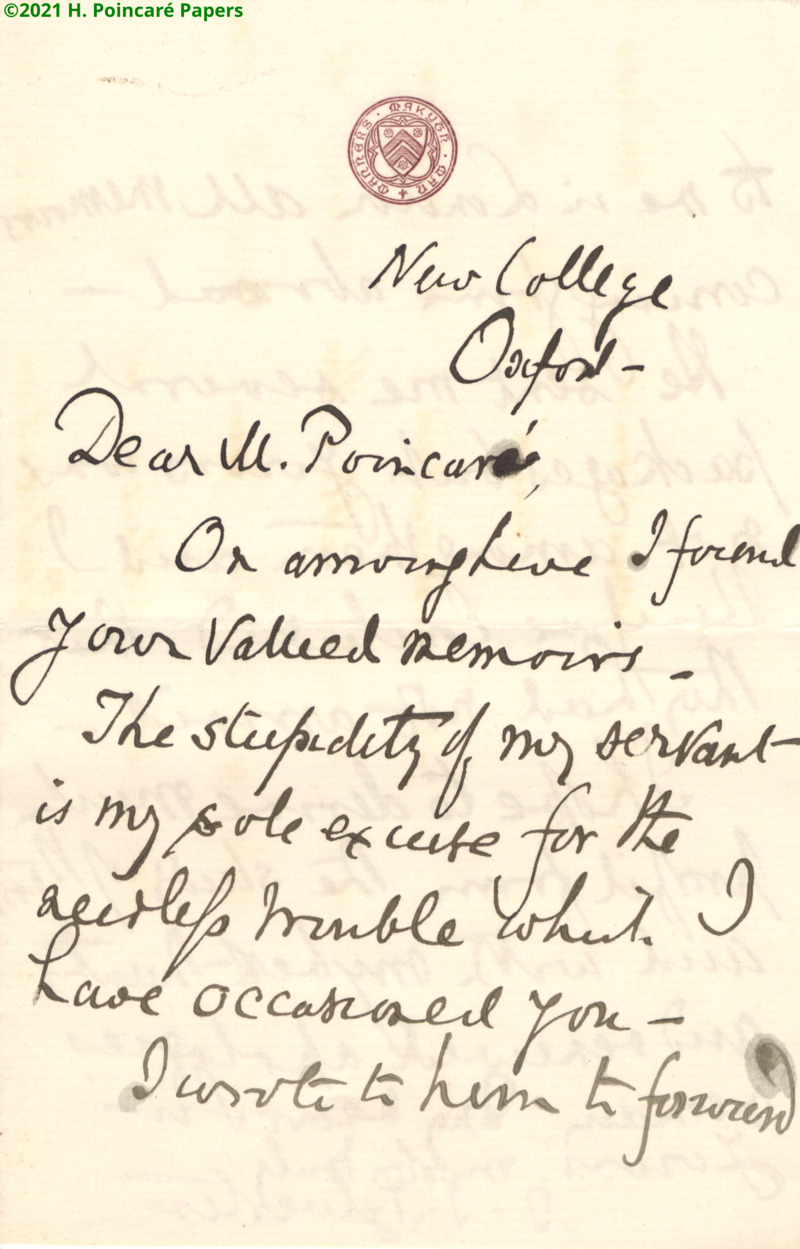 ©2021 H. Poincaré Papers
MANNERS · MAKYTH · MAN
New College
Oxford –
Dear M. Poincaré,
On arriving here I found
your valued memoirs –
The stupidity of my servant
is my sole excuse for the
needless trouble which I
have occasioned you –
I wrote to him to forward